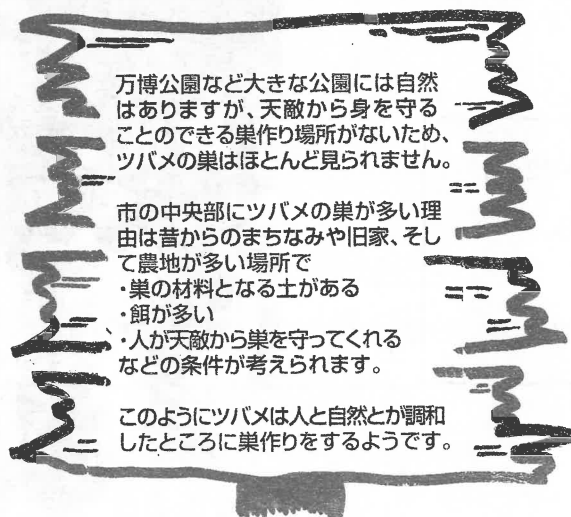 万博公園など大きな公園には自然
はありますが、天敵から身を守る
ことのできる巣作り場所がないため、
ツバメの巣はほとんど見られません。
市の中央部にツバメの巣が多い理
由は昔からのまちなみや旧家、そし
て農地が多い場所で
・巣の材料となる土がある
・餌が多い
・人が天敵から巣を守ってくれる
などの条件が考えられます。
このようにツバメは人と自然とが調和
したところに巣作りをするようです。